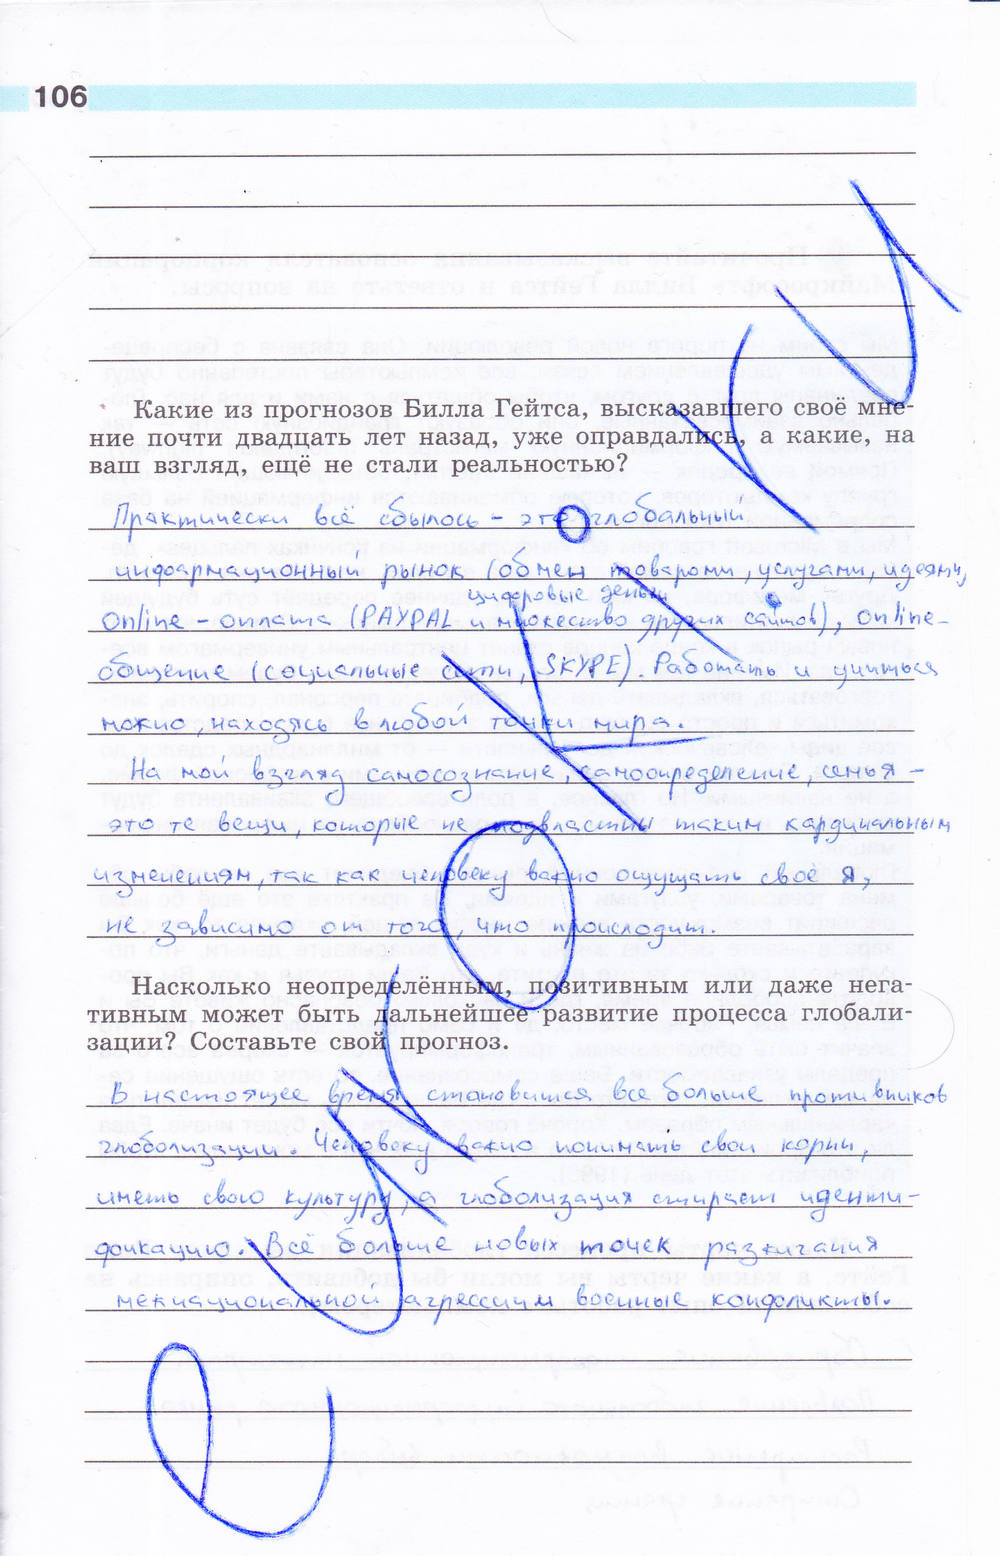 106
Какие из прогнозов Билла Гейтса, высказавшего своё мне-
ние почти двадцать лет назад, уже оправдались, а какие, на
ваш взгляд, ещё не стали реальностью?
Практически всё сбылось - это глобальный
информационный рынок (обмен товарами, услугами, идеями,
цифровые деньги
Online - оплата (PAYPAL и множество других сайтов), Online-
общение (социальные сети, SKYPE). Работать и учиться
можно, находясь в любой точки мира.
На мой взгляд самосознание, самоопределение, семья -
это те вещи, которые не подвластны таким кардинальным
изменениям, так как человеку важно ощущать своё я,
не зависимо от того, что происходит.
Насколько неопределённым, позитивным или даже нега-
тивным может быть дальнейшее развитие процесса глобали-
зации? Составьте свой прогноз.
В настоящее время становится всё больше противников
глоболизации. Человеку важно понимать свои корни,
иметь свою культуру, а глоболизация стирает иденти-
фикацию. Всё больше новых точек разжигания
межнациональной агрессии военные конфликты.